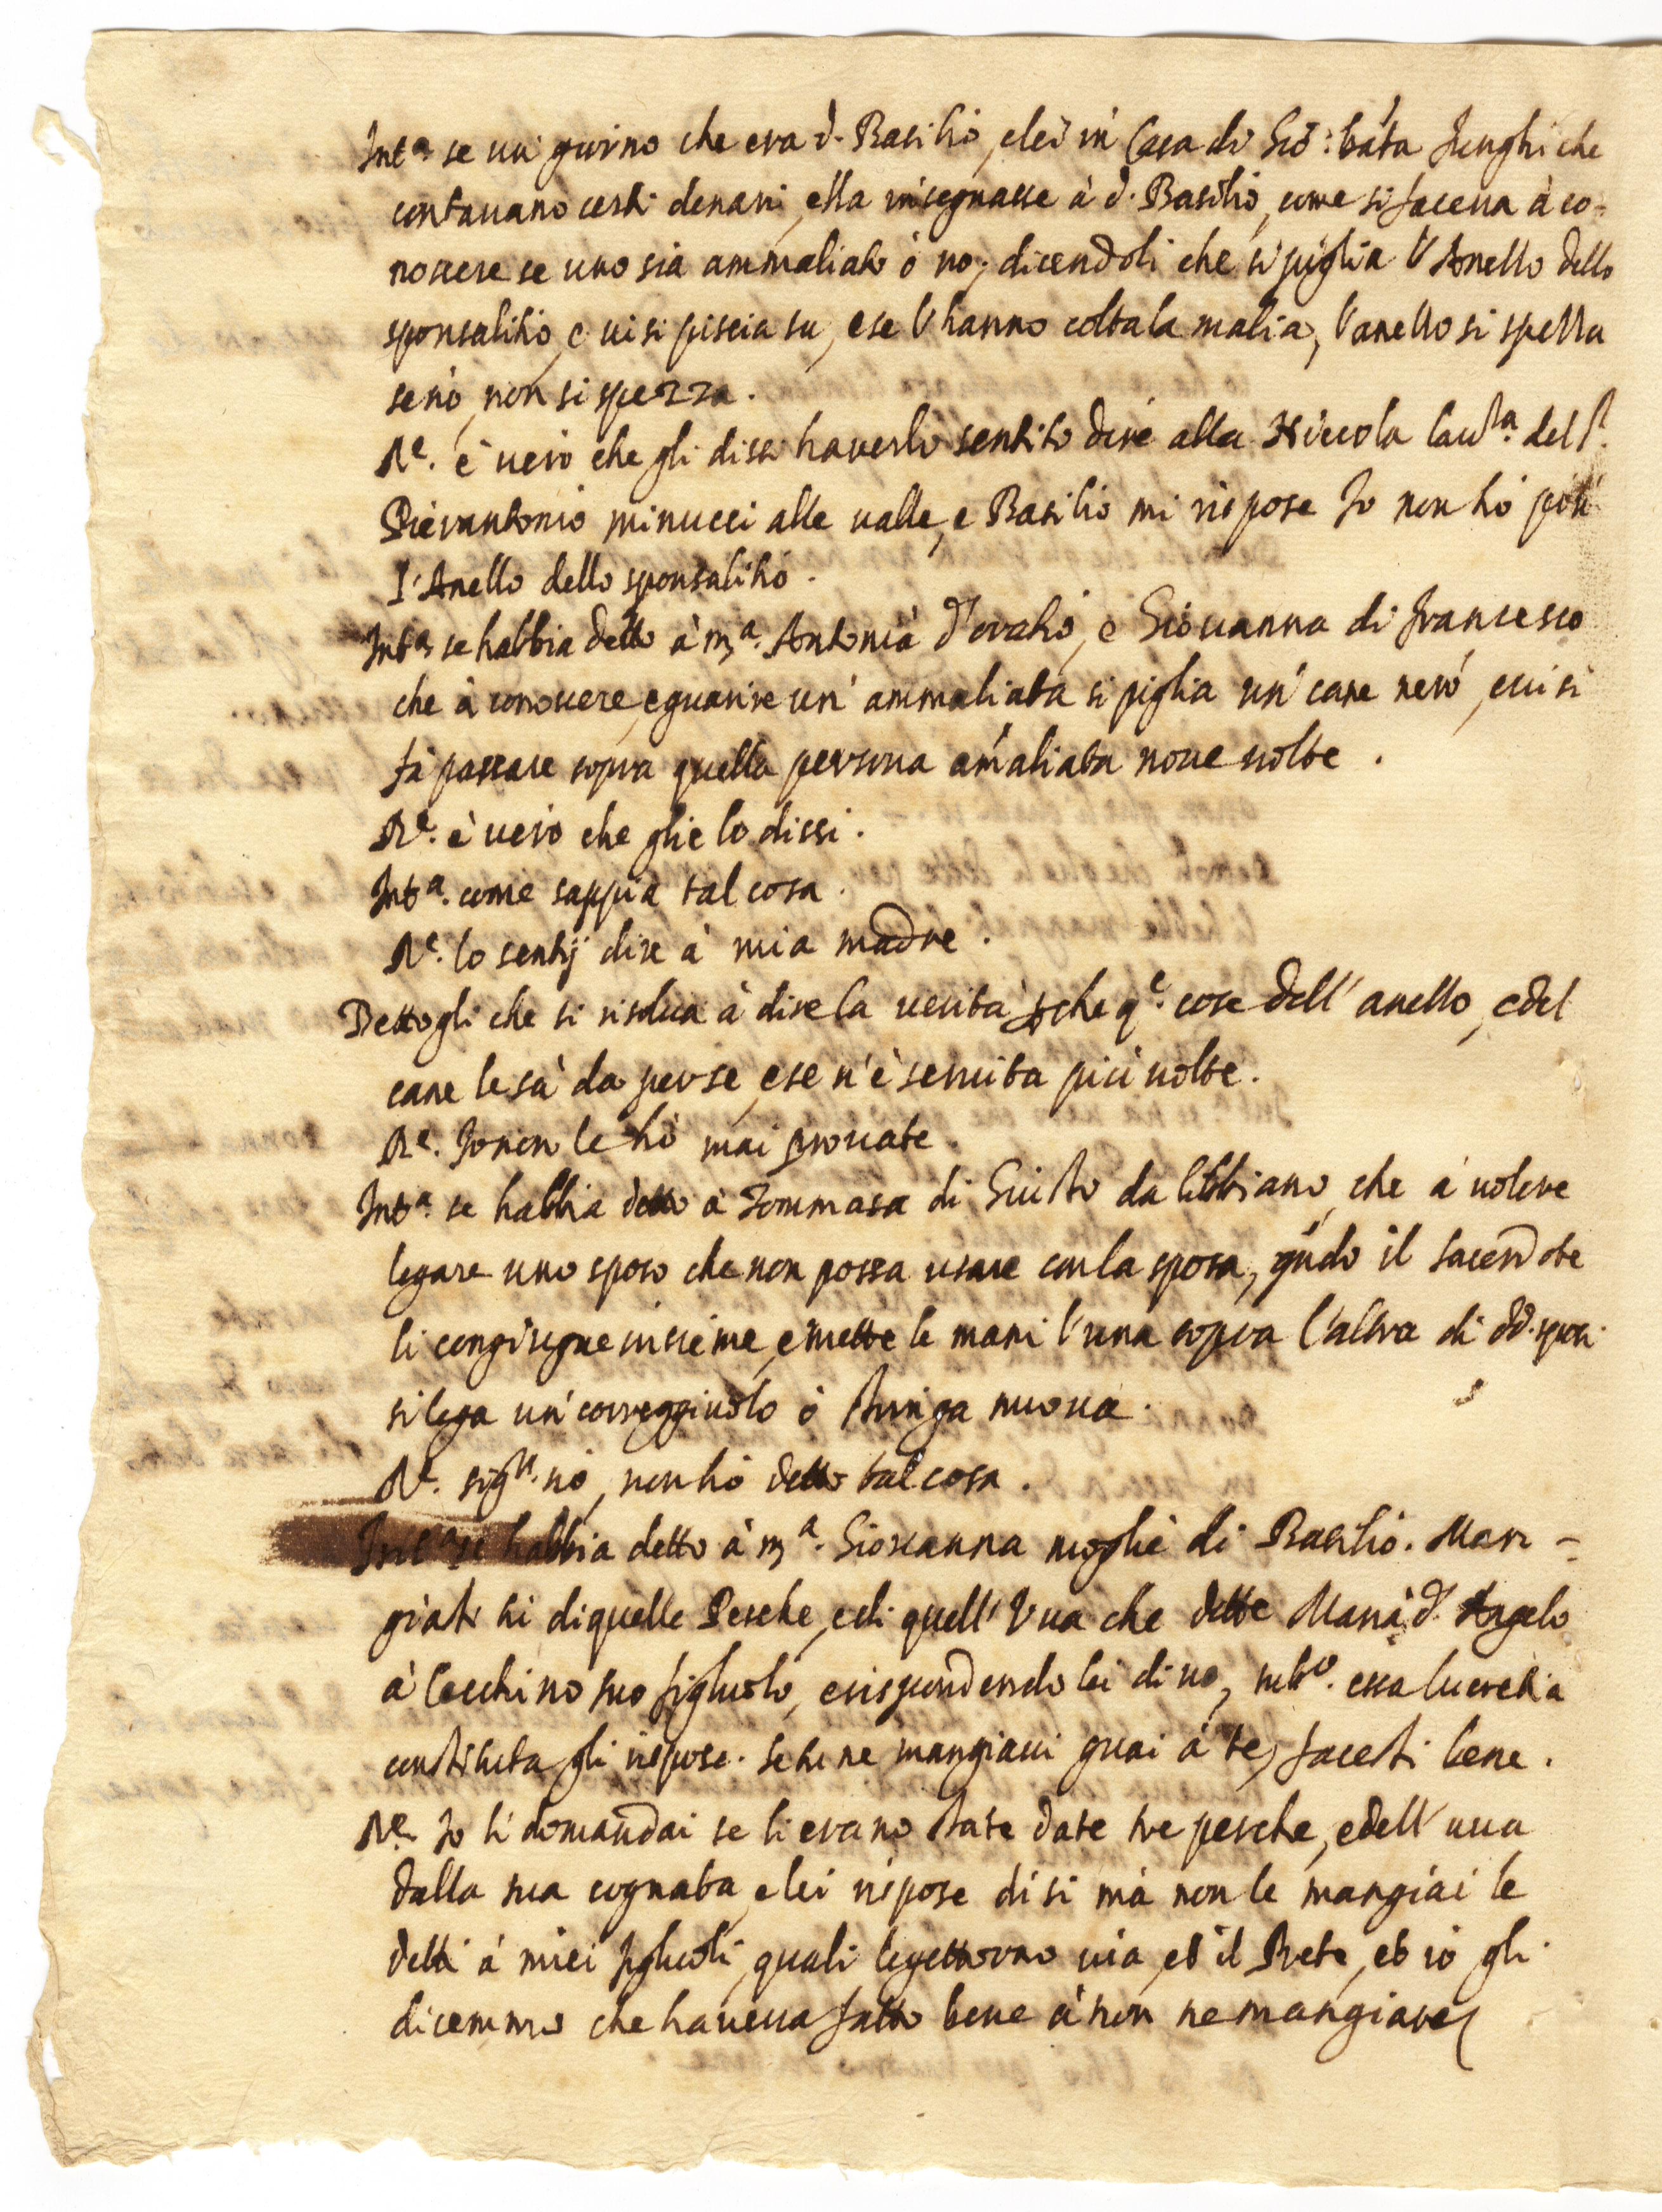 Int.ª se un' giorno che era d. Basilio, e lei in Casa di Gio: bat'a Junghi che
contauano certi denari, ella insegnasse à d. Basilio, come si faceua à co-
noscere se uno sia ammaliato ò no; dicendoli che si piglia l'Anello dello
sponsalitio, e ui si piscia su, e se l'hanno colta la malia, l'anello si spezza
se nò, non si spezza.
R.e è uero che gli dissi hauerlo sentito dire alla Niccola lau.ra del S.r
Pierantonio minucci alle ualle, e Basilio mi rispose Io non hò
l'Anello dello sponsalitio.
Int.ª se habbia detto à m.ª Antonia d'oratio, e Giouanna di francesco
che à conoscere, e guarire un' ammaliata si piglia un' cane nero, e ui si
fà passare sopra quella persona am'aliata noue uolte.
R.e è uero che glie lo dissi.
Int.ª come sappia tal cosa.
R.e lo sentij dire à mia madre.
Dettogli che si risolua à dire la uerità p che q.e cose dell' anello, e del
cane le sà da per se, e se n'è seruita più uolte.
R.e Io non le hò mai prouate.
Int.ª se habbia detto à Tommasa di Giusto da libbiano, che à uolere
legare uno sposo che non possa usare con la sposa, qn'do il sacerdote
li congiugne insieme, e mette le mani l'una sopra l'altra di dd. sposi
si lega un' correggiuolo ò stringa nuoua.
R.e sig.re nò, non hò detto tal cosa.
Int.ª se habbia detto à m.ª Giouanna moglie di Basilio. Man-
giasti di quelle Pesche, e di quell' Vua che dette Maria d' Angelo
à Cecchino suo figliuolo, e rispondendo lei di no, sub.o essa lucretia
constituta gli rispose. se tu ne mangiaui guai à te, facesti bene.
R.e Io li domandai se li erano state date tre pesche, e dell' uua
dalla sua cognata, e lei rispose di si mà non le mangiai le
detti à miei figliuoli, quali le gettorno uia, et il Prete, et io gli
dicemmo che haueua fatto bene à non ne mangiare